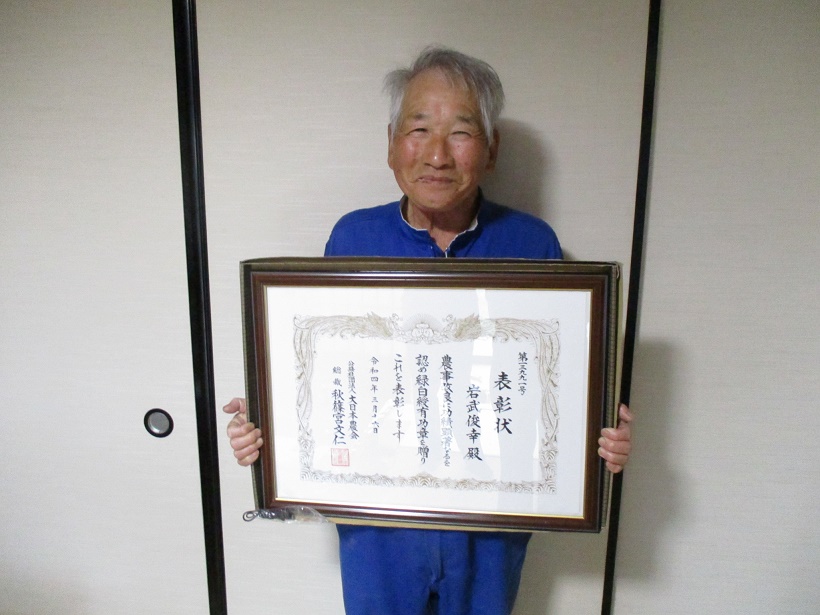 第一三六九一号
表彰状
岩武俊幸殿
農事改良の功績顕著なるを
認め緑白綬有功章を贈り
これを表彰します
令和四年三月十六日
公益社団法人大日本農会
総裁秋篠宮文仁